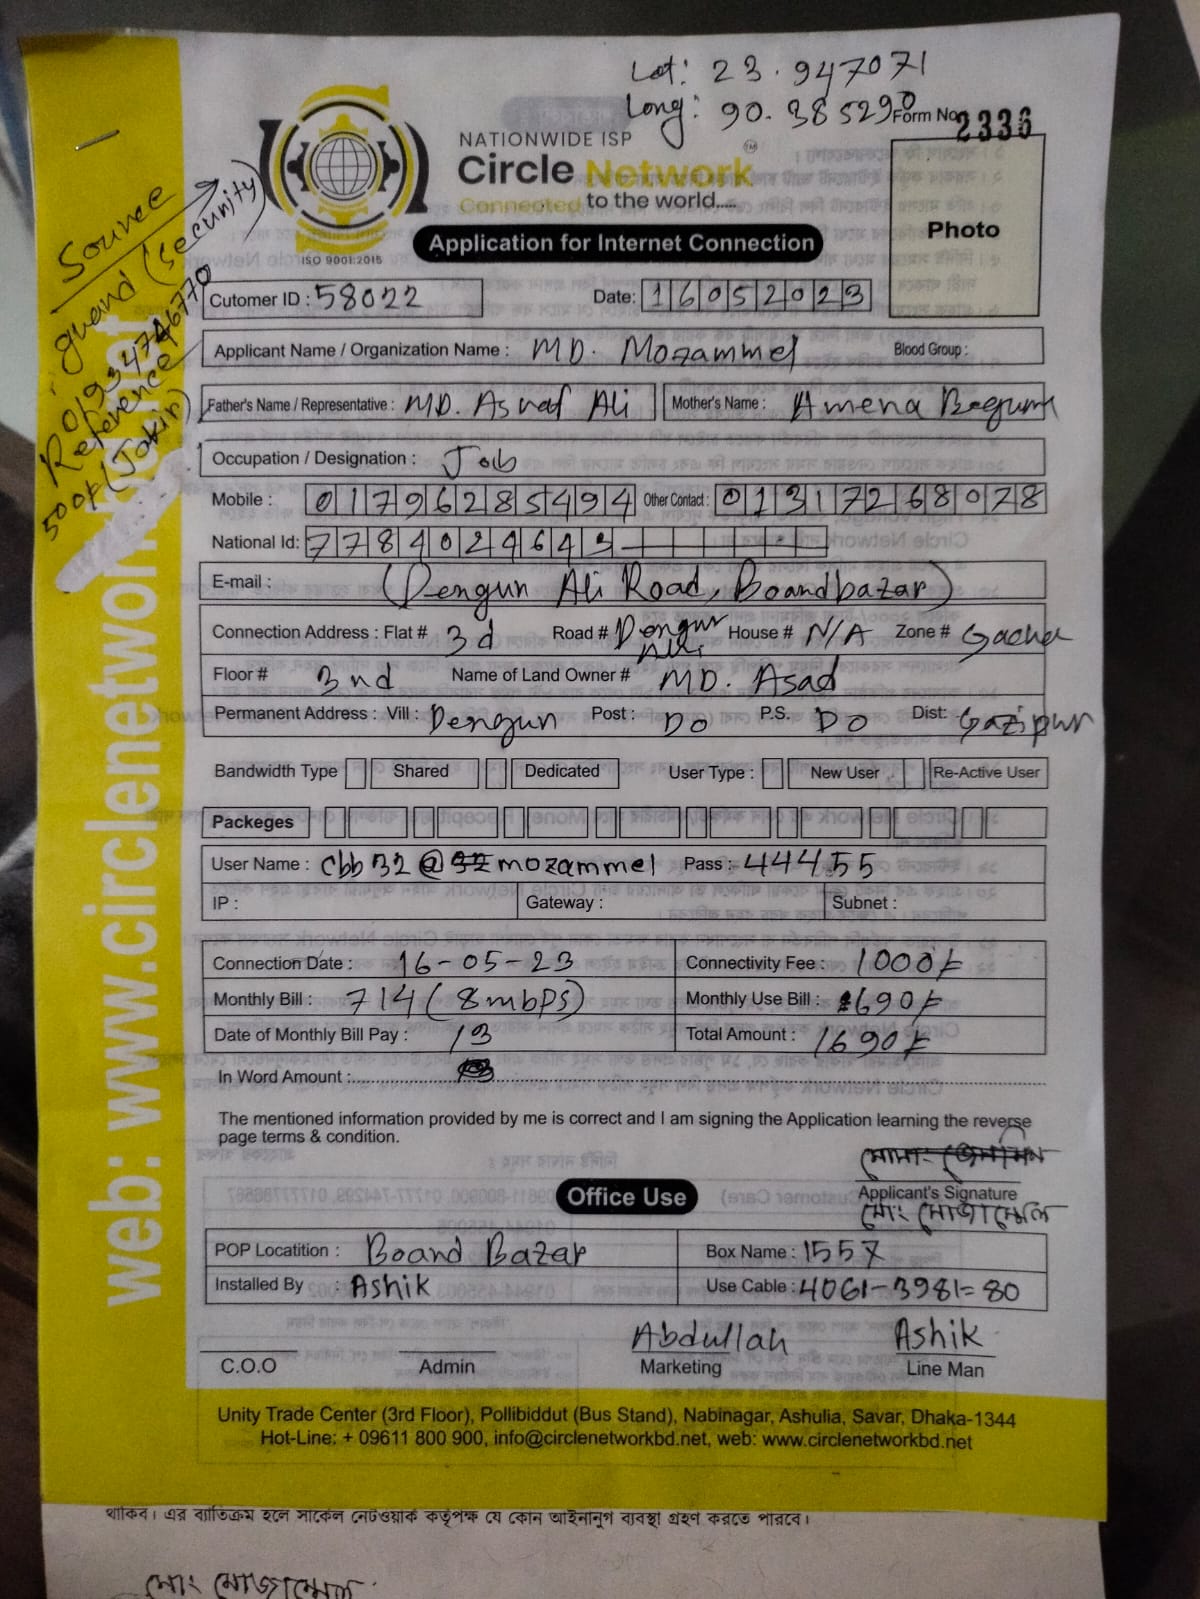 Lat: 23.947071
Long: 90.385290
Form No. 2336
NATIONWIDE ISP
Circle Network
TM
Connected to the world.....
ISO 9001:2015
Application for Internet Connection
Photo
Source
guard (security)
01934746770
Reference
500৳ (Jakir)
Cutomer ID : 58022
Date: 16052023
Applicant Name / Organization Name : MD. Mozammel Blood Group :
Father's Name / Representative : MD. Asraf Ali Mother's Name : Amena Beegum
Occupation / Designation : Job
Mobile : 01796285494 Other Contact : 01317268078
National Id: 7784024643
E-mail : (Dengun Ali Road, Boardbazar)
Connection Address : Flat # 3d Road # Dengur Ali House # N/A Zone # Gacha
Floor # 3nd Name of Land Owner # MD. Asad
Permanent Address : Vill : Dengun Post : DO P.S. DO Dist: Gazipur
Bandwidth Type Shared Dedicated User Type : New User Re-Active User
Packeges
User Name : cbb32@mozammel Pass : 44455
IP : Gateway : Subnet :
Connection Date : 16-05-23 Connectivity Fee : 1000৳
Monthly Bill : 714 (8mbps) Monthly Use Bill : 690৳
Date of Monthly Bill Pay : 13 Total Amount : 1690৳
In Word Amount :
The mentioned information provided by me is correct and I am signing the Application learning the reverse
page terms & condition.
Applicant's Signature
মোঃ মোজাম্মেল
Office Use
POP Locatition : Board Bazar Box Name : 1557
Installed By : Ashik Use Cable : 4061-3981=80
Abdullah Ashik
C.O.O Admin Marketing Line Man
Unity Trade Center (3rd Floor), Pollibiddut (Bus Stand), Nabinagar, Ashulia, Savar, Dhaka-1344
Hot-Line: + 09611 800 900, info@circlenetworkbd.net, web: www.circlenetworkbd.net
web: www.circlenetworkbd.net
থাকিব। এর ব্যতিক্রম হলে সার্কেল নেটওয়ার্ক কর্তৃপক্ষ যে কোন আইনানুগ ব্যবস্থা গ্রহণ করতে পারবে।
মোঃ মোজাম্মেল